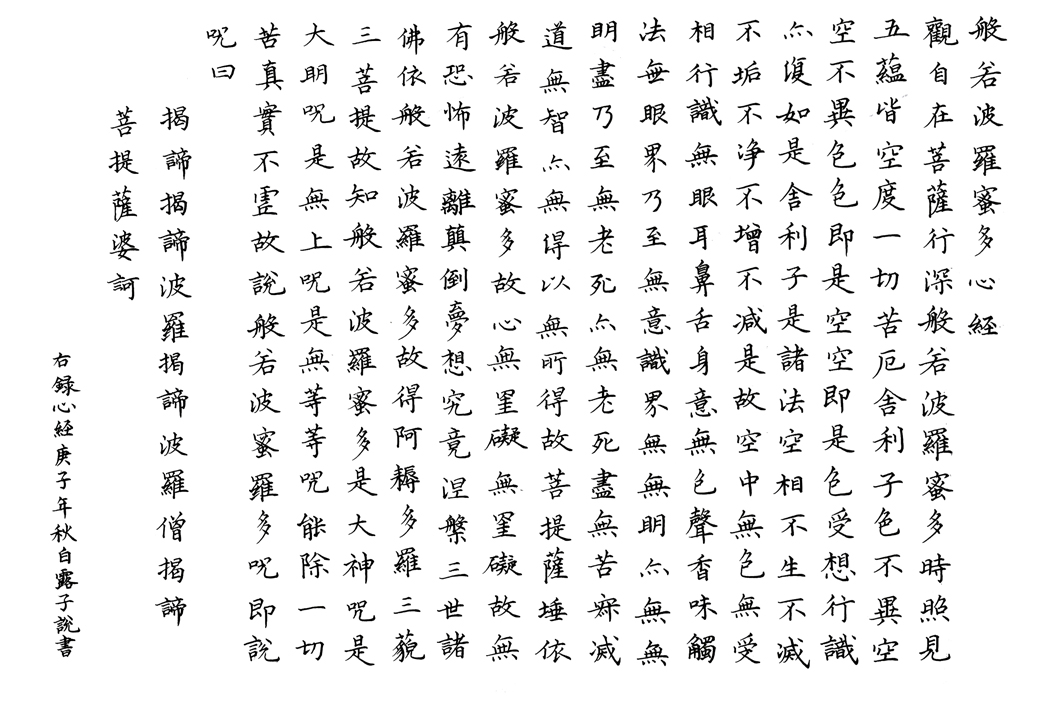 般若波羅蜜多心経
觀自在菩薩行深般若波羅蜜多時照見
五蘊皆空度一切苦厄舍利子色不異空
空不異色色即是空空即是色受想行識
亦復如是舍利子是諸法空相不生不滅
不垢不净不增不减是故空中無色無受
相行識無眼耳鼻舌身意無色聲香味觸
法無眼界乃至無意識界無無明亦無無
明盡乃至無老死亦無老死盡無苦寂滅
道無智亦無得以無所得故菩提薩埵依
般若波羅蜜多故心無罣礙無罣礙故無
有恐怖遠離顛倒夢想究竟涅槃三世諸
佛依般若波羅蜜多故得阿耨多羅三藐
三菩提故知般若波羅蜜多是大神呪是
大明呪是無上呪是無等等呪能除一切
苦真實不虛故說般若波蜜羅多呪即說
呪曰
揭諦揭諦波羅揭諦波羅僧揭諦
菩提薩婆訶
右録心経庚子年秋白露子說書